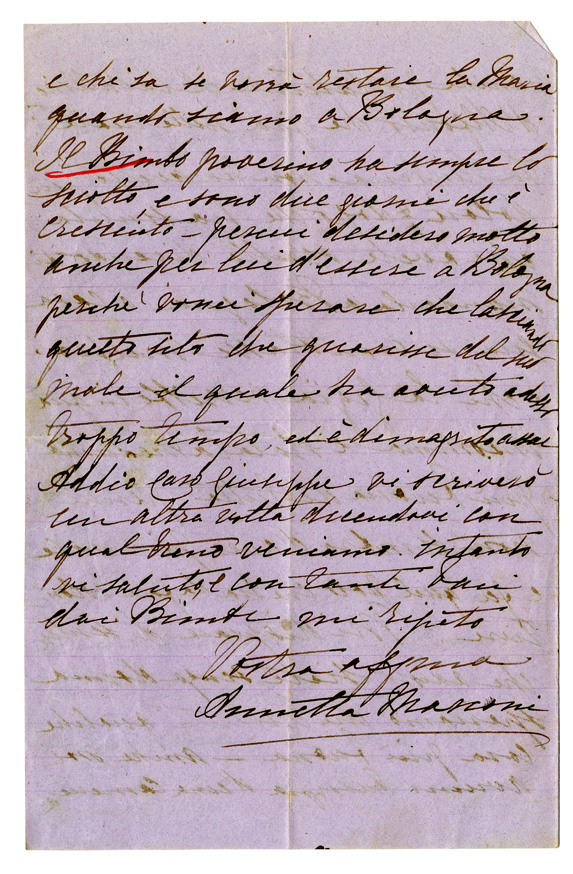 e chi sa se vorrà restare la Maria
quando siamo a Bologna.
Il Bimbo poverino ha sempre lo
sciolto, e sono due giorni che è
cresciuto – percui desidero molto
anche per lui d'essere a Bologna
perchè vorrei sperare che lasciando
questo sito che guarisse del suo
male il quale ha avuto adesso
troppo tempo, ed è dimagrito assai
Addio Caro Giuseppe vi scriverò
un altra volta dicendovi con
qual treno veniamo. intanto
vi saluto e con tanti baci
dai Bimbi mi ripeto
Vostra affma
Annetta Marconi